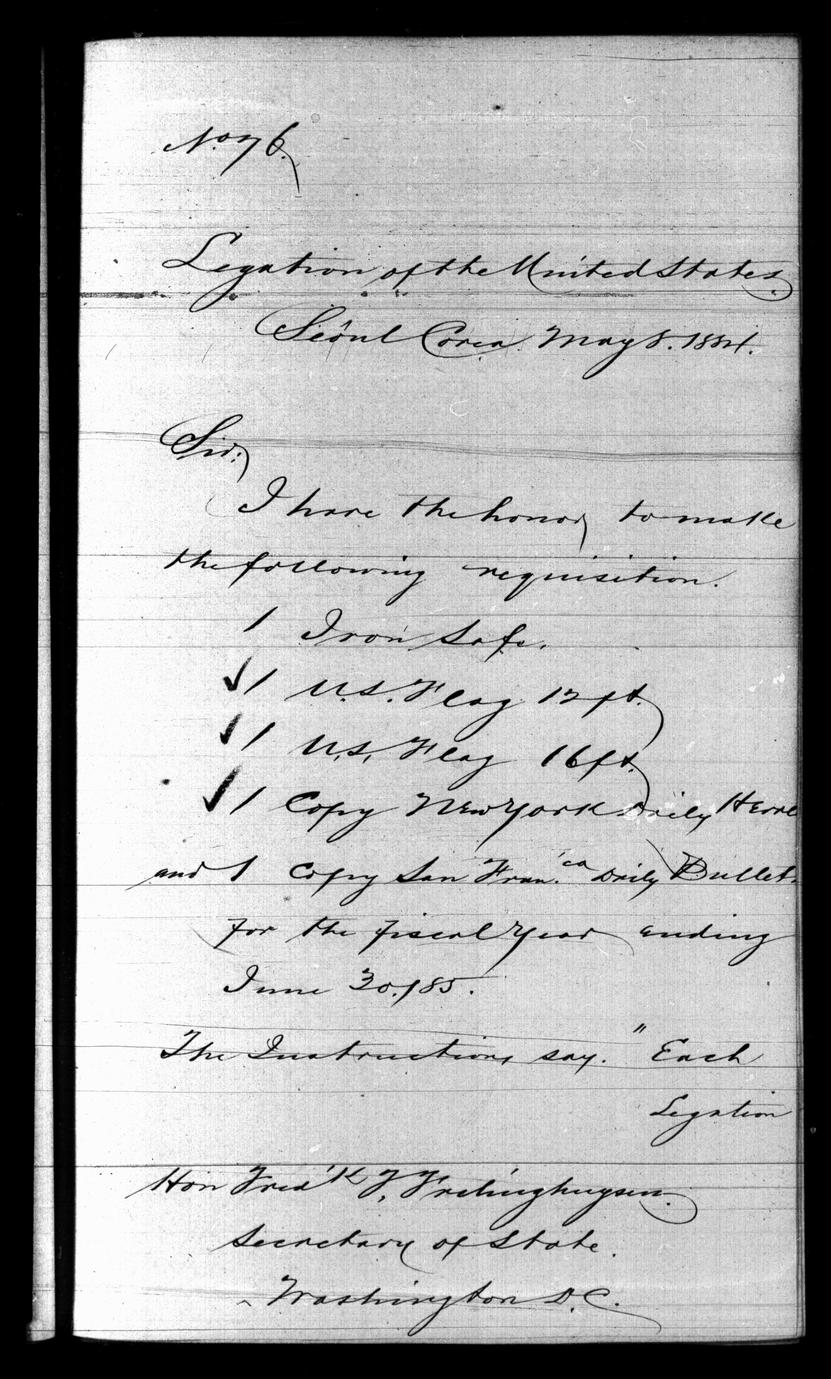 No 76.
Legation of the United States.
Seoul Corea. May 8. 1884.
Sir:
I have the honor, to make
the following requisition.
1 Iron Safe.
✓1 U.S. Flag 12 ft.
✓1 U.S. Flag 16 ft.
✓1 Copy New York Daily Heral
and 1 Copy San Fran.ca Daily Bulleti
for the fiscal year ending
June 30./85.
The Instructions say. " Each
Legation
Hon Fred'k T. Frelinghuysen.
Secretary of State.
Washington D.C.